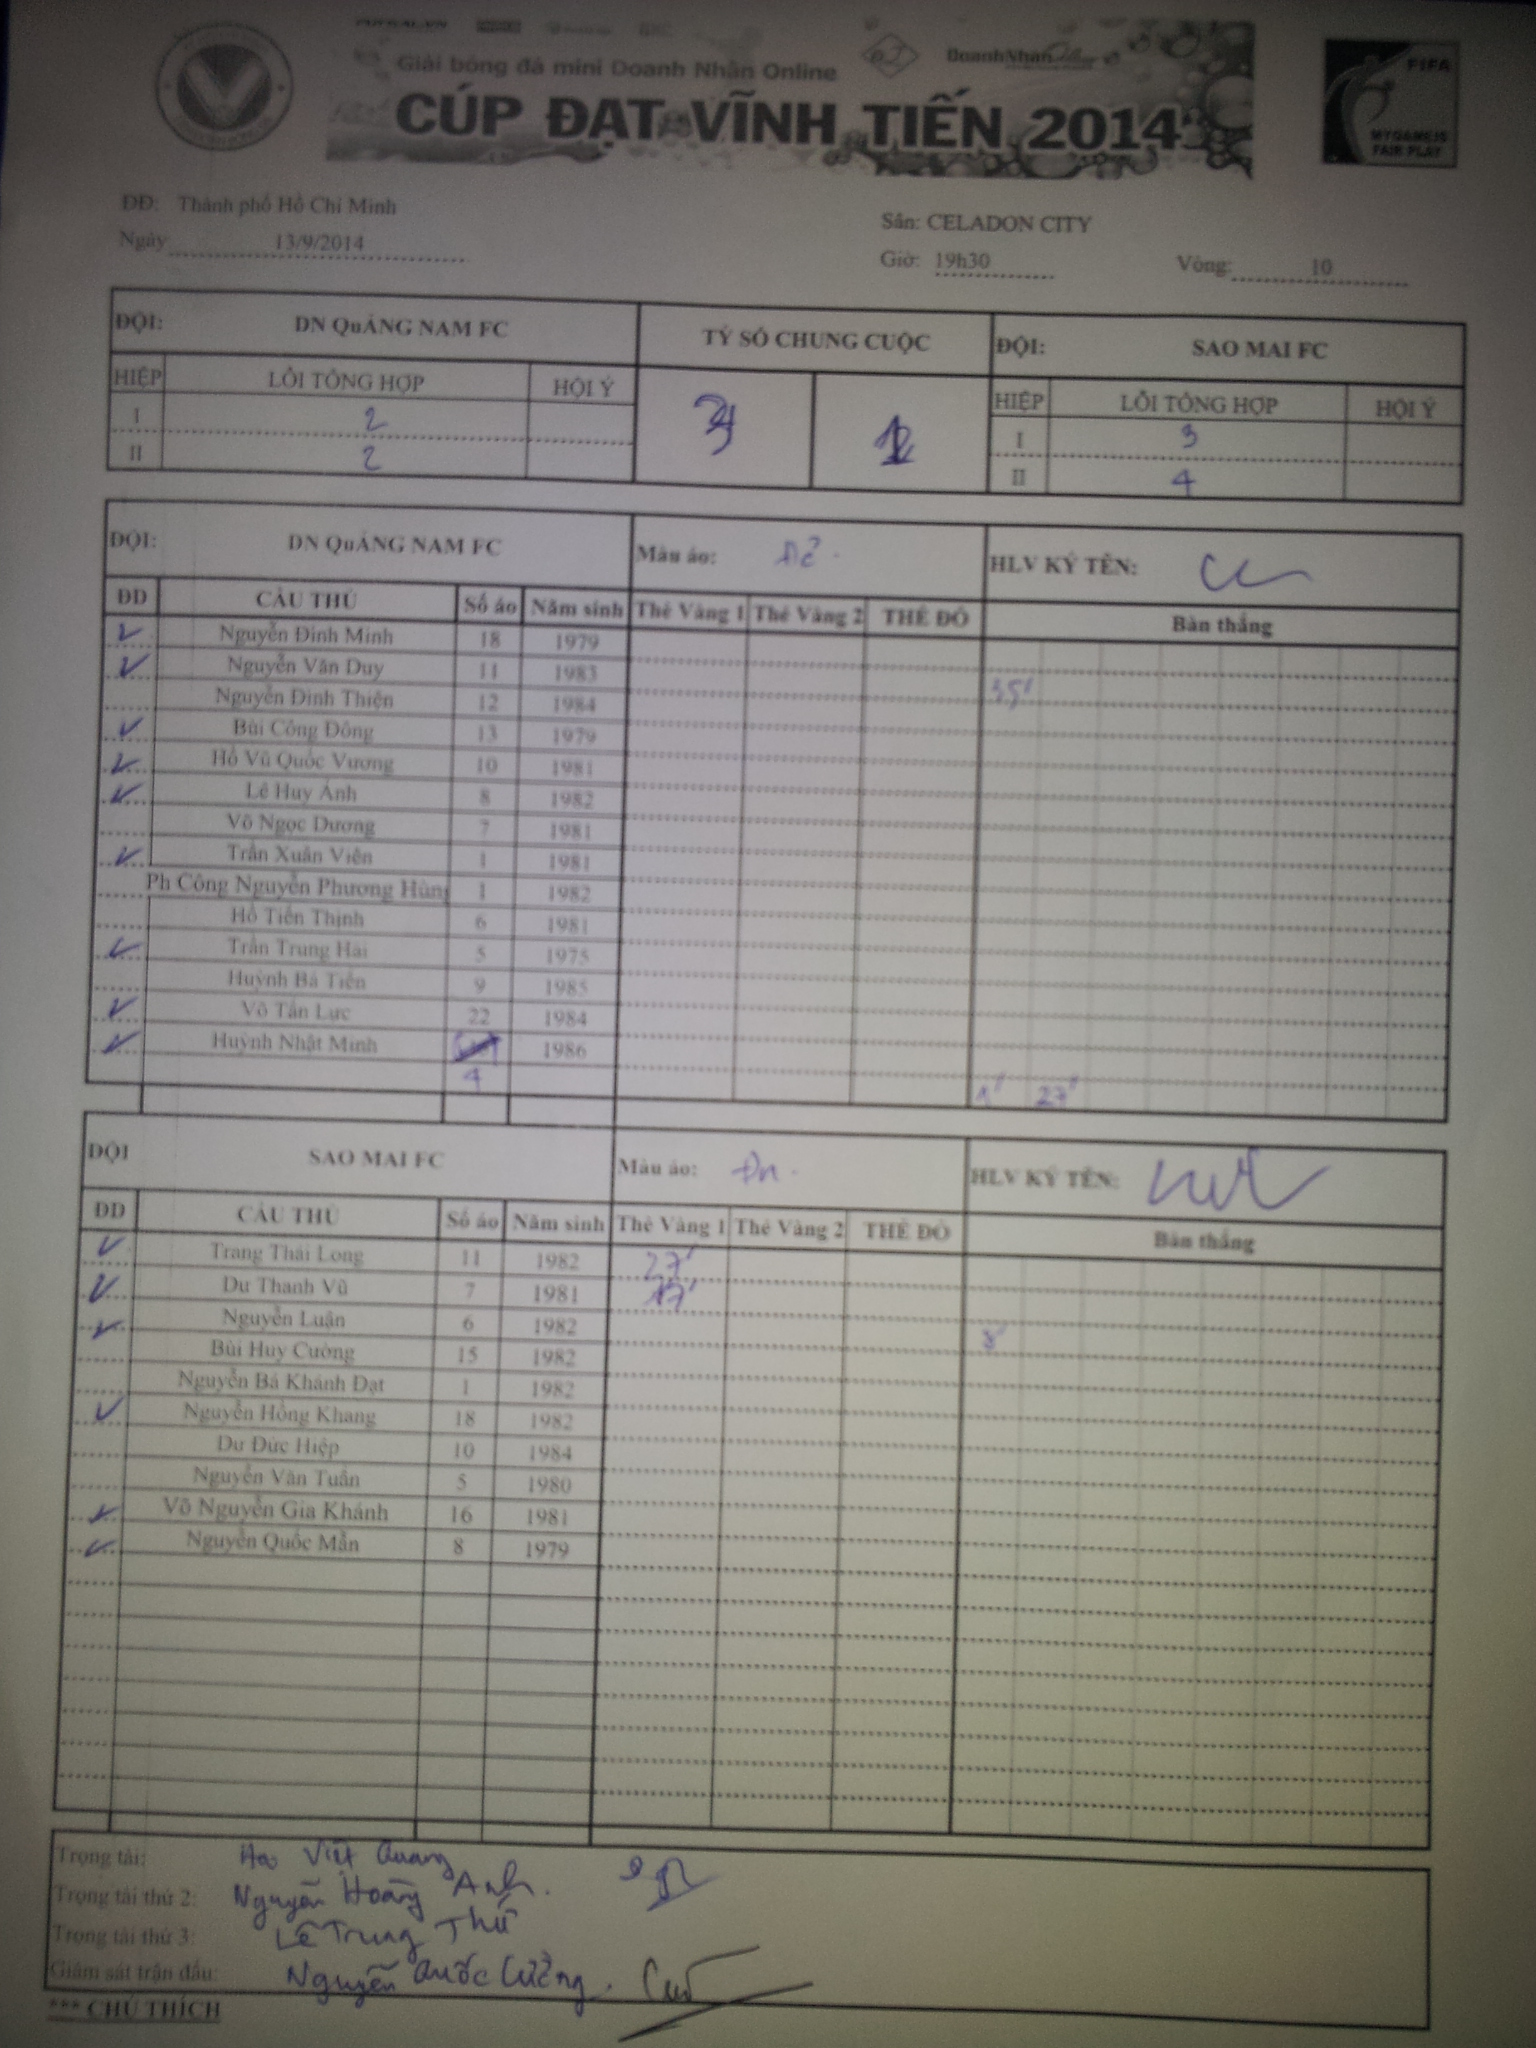 Giải bóng đá mini Doanh Nhân Online
DoanhNhân
CÚP ĐẠT VĨNH TIẾN 2014
FIFA
MY GAME IS
FAIR PLAY
ĐĐ: Thành phố Hồ Chí Minh
Sân: CELADON CITY
Ngày 13/9/2014
Giờ: 19h30 Vòng: 10
ĐỘI: DN QuẢNG NAM FC TỶ SỐ CHUNG CUỘC ĐỘI: SAO MAI FC
HIỆP LỖI TỔNG HỢP HỘI Ý HIỆP LỖI TỔNG HỢP HỘI Ý
I 2 I 3
II 2 II 4
ĐỘI: DN QuẢNG NAM FC Màu áo: HLV KÝ TÊN:
ĐD CẦU THỦ Số áo Năm sinh Thẻ Vàng 1 Thẻ Vàng 2 THẺ ĐỎ Bàn thắng
Nguyễn Đình Minh 18 1979
Nguyễn Văn Duy 11 1983 35'
Nguyễn Đình Thiện 12 1984
Bùi Công Đông 13 1979
Hồ Vũ Quốc Vương 10 1981
Lê Huy Ánh 8 1982
Võ Ngọc Dương 7 1981
Trần Xuân Viên 1 1981
Ph Công Nguyễn Phương Hùng 1 1982
Hồ Tiến Thịnh 6 1981
Trần Trung Hải 5 1975
Huỳnh Bá Tiên 9 1985
Võ Tấn Lực 22 1984
Huỳnh Nhật Minh 1986
4 27'
ĐỘI SAO MAI FC Màu áo: HLV KÝ TÊN:
ĐD CẦU THỦ Số áo Năm sinh Thẻ Vàng 1 Thẻ Vàng 2 THẺ ĐỎ Bàn thắng
Trang Thái Long 11 1982 27'
Dư Thanh Vũ 7 1981
Nguyễn Luận 6 1982 8'
Bùi Huy Cường 15 1982
Nguyễn Bá Khánh Đạt 1 1982
Nguyễn Hồng Khang 18 1982
Dư Đức Hiệp 10 1984
Nguyễn Văn Tuấn 5 1980
Võ Nguyễn Gia Khánh 16 1981
Nguyễn Quốc Mẫn 8 1979
Trọng tài: Việt Quang
Trọng tài thứ 2: Nguyễn Hoàng Anh.
Trọng tài thứ 3: Lê Trung Thứ
Giám sát trận đấu: Nguyễn Quốc Cường.
*** CHÚ THÍCH